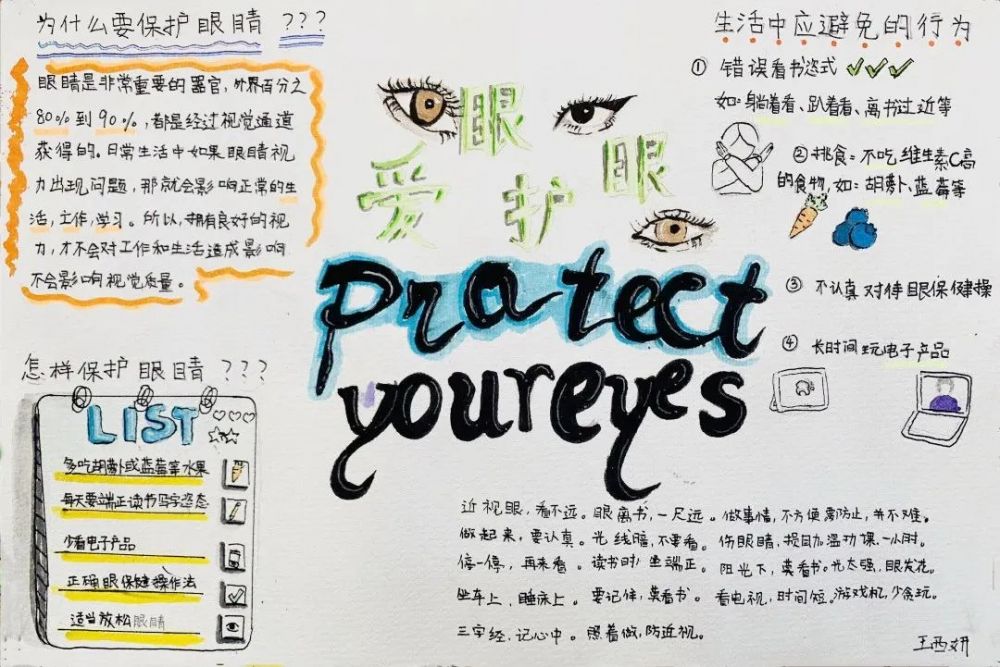 为什么要保护眼睛 ???
眼睛是非常重要的器官，外界百分之
80%到90%，都是经过视觉通道
获得的。日常生活中如果眼睛视
力出现问题，那就会影响正常的生
活，工作，学习。所以，拥有良好的视
力，才不会对工作和生活造成影响
不会影响视觉质量。
怎样保护眼睛 ???
LIST
多吃胡萝卜或蓝莓等水果
每天要端正读书写字姿态
少看电子产品
正确眼保健操作法
适当放松眼睛
爱眼护眼
protect
youreyes
生活中应避免的行为
① 错误看书姿式 ✓✓✓
如：躺着看、趴着看、离书过近等
②挑食：不吃维生素C高
的食物，如：胡萝卜、蓝莓等
③ 不认真对待眼保健操
④ 长时间玩电子产品
近视眼，看不远。眼离书，一尺远。做事情，不方便需防止，并不难。
做起来，要认真。光线暗，不要看。伤眼睛，损目力温功课一小时。
停一停，再来看。读书时坐端正。阳光下，莫看书。光太强，眼发花。
坐车上，睡床上。要记住，莫看书。看电视，时间短。游戏机，少贪玩。
三字经，记心中。照着做，防近视。
王西妍